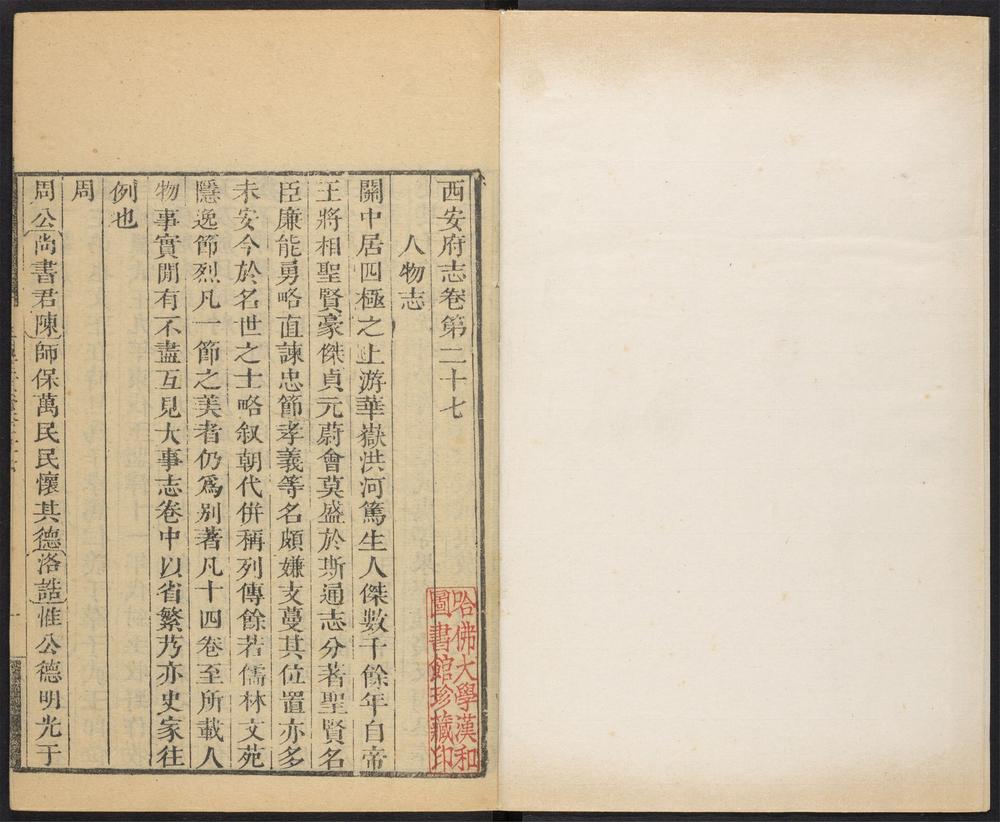 西安府志卷第二十七
人物志
關中居四極之上游華嶽洪河篤生人傑數千餘年自帝
王將相聖賢豪傑貞元蔚會莫盛於斯通志分著聖賢名
臣廉能勇略直諫忠節孝義等名頗嫌支蔓其位置亦多
未安今於名世之士略叙朝代併稱列傳餘若儒林文苑
隱逸節烈凡一節之美者仍爲別著凡十四卷至所載人
物事實閒有不盡互見大事志卷中以省繁芿亦史家往
例也
周
周公尚書君陳師保萬民民懷其德洛誥惟公德明光于
哈佛大學漢和
圖書館珍藏印